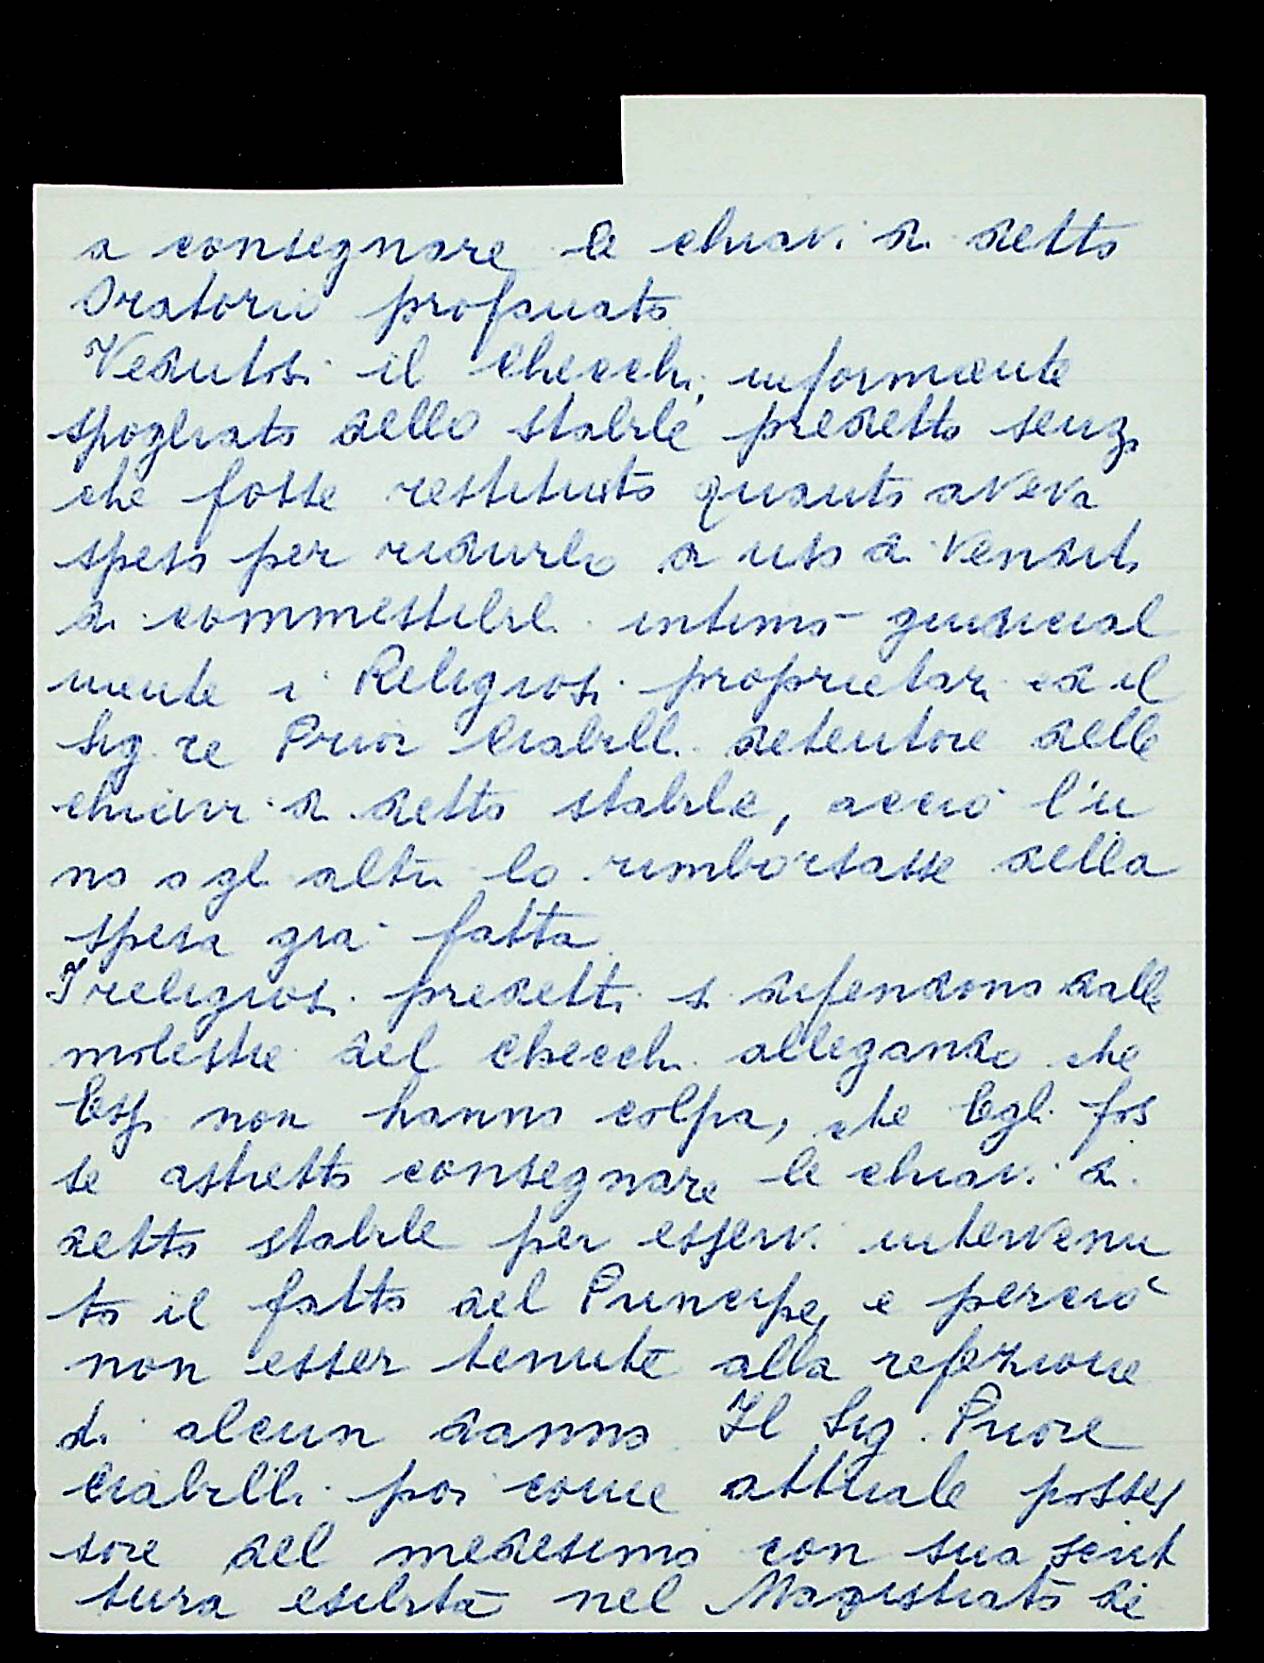 a consegnare le chiavi di detto
Oratorio profanato.
Vedutosi il Checchi, informente
spogliato dello stabile predetto senza
che fosse restituito quanto aveva
speso per ridurlo a uso di vendita
di commestibili intimò giudicial
mente i Religiosi proprietari ed il
Sig.re Prior Ciabilli detentore delle
chiavi di detto stabile, acciò l'u
no o gli altri lo rimborsasse della
spesa già fatta.
I religiosi predetti si difendono dalle
molestie del Checchi allegando che
Essi non hanno colpa, che Egli fos
se astretto consegnare le chiavi di
detto stabile per esservi intervenu
to il fatto del Principe, e perciò
non esser tenute alla refezione
di alcun danno Il Sig. Priore
Ciabilli poi come attuale posses
sore del medesimo con sua scrit
tura esibita nel Magistrato di